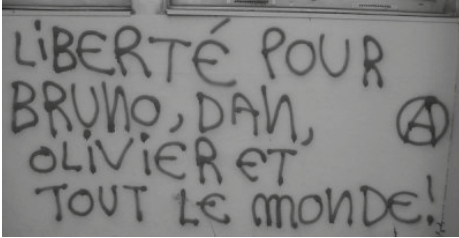 LiBERTÉ POUR
BRUNO, DAN,
OLiViER ET
TOUT LE MONDE!